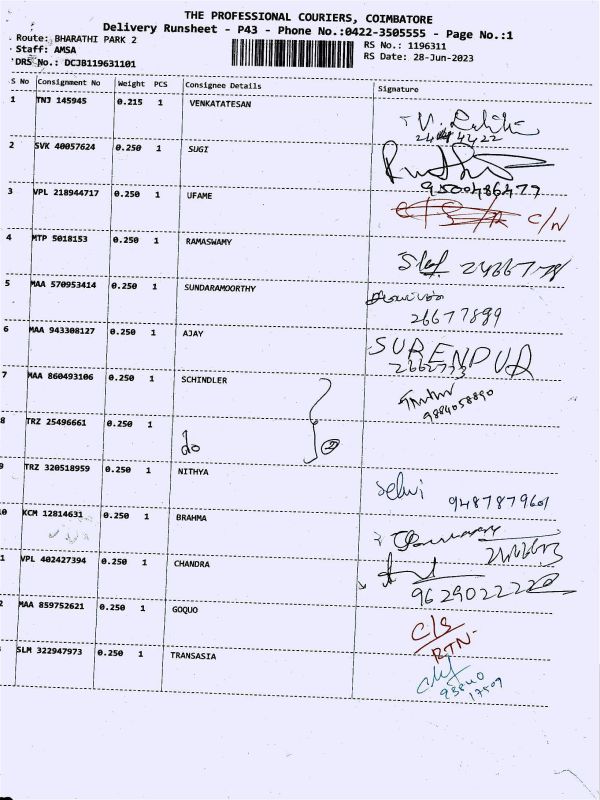 THE PROFESSIONAL COURIERS, COIMBATORE
Delivery Runsheet - P43 - Phone No.:0422-3505555 - Page No.:1
Route: BHARATHI PARK 2
Staff: AMSA
DRS No.: DCJB119631101
RS No.: 1196311
RS Date: 28-Jun-2023
S No Consignment No Weight PCS Consignee Details Signature
1 TNJ 145945 0.215 1 VENKATATESAN
2 SVK 40057624 0.250 1 SUGI
9500486477
3 VPL 218944717 0.250 1 UFAME
C/N
4 MTP 5018153 0.250 1 RAMASWAMY
5 MAA 570953414 0.250 1 SUNDARAMOORTHY
26677899
6 MAA 943308127 0.250 1 AJAY
7 MAA 860493106 0.250 1 SCHINDLER
9884058890
8 TRZ 25496661 0.250 1 do 2
9 TRZ 320518959 0.250 1 NITHYA Selvi 9487879601
10 KCM 12814631 0.250 1 BRAHMA
1 VPL 402427394 0.250 1 CHANDRA
2 MAA 859752621 0.250 1 GOQUO C/S
RTN-
3 SLM 322947973 0.250 1 TRANSASIA